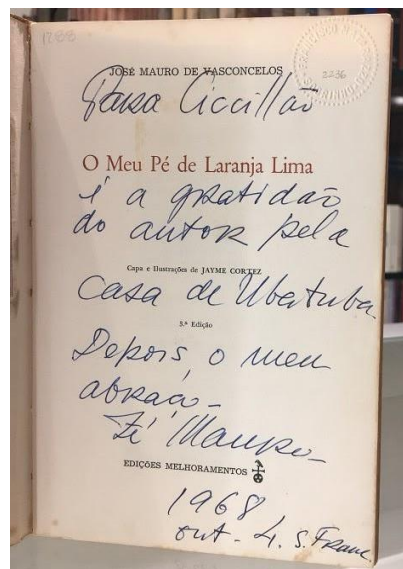 1288
JOSÉ MAURO DE VASCONCELOS
2236
Para Ciccillão
O Meu Pé de Laranja Lima
é a gratidão
do autor pela
Capa e Ilustrações de JAYME CORTEZ
casa de Ubatuba
3.ª Edição
Depois, o meu
abraço-
Zé Mauro-
EDIÇÕES MELHORAMENTOS
1968
out - 4. S. Franc